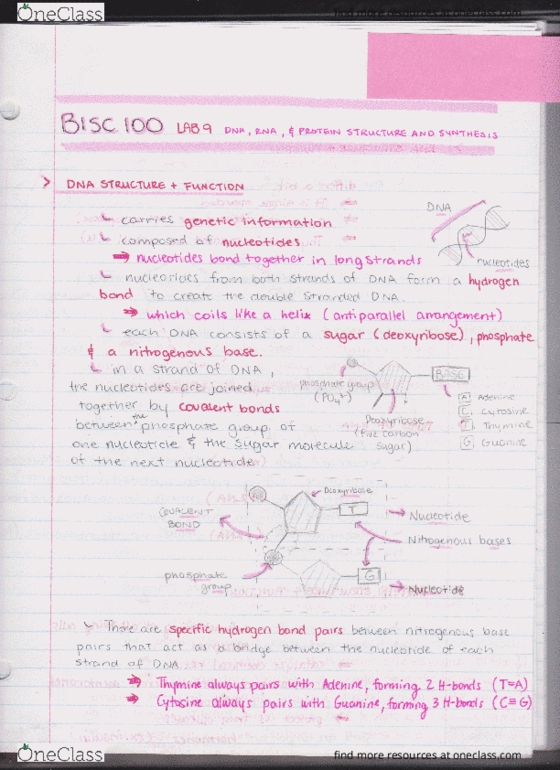 OneClass
find more resources at oneclass.com
BISC 100 LAB 9 DNA, RNA, & PROTEIN STRUCTURE AND SYNTHESIS
> DNA STRUCTURE + FUNCTION
carries genetic information
composed of nucleotides
→ nucleotides bond together in long strands
DNA
nucleotides
nucleotides from both strands of DNA form a hydrogen
bond to create the double stranded DNA.
→ which coils like a helix (antiparallel arrangement)
each DNA consists of a sugar (deoxyribose), phosphate
& a nitrogenous base.
in a strand of DNA,
the nucleotides are joined
together by covalent bonds
between the phosphate group of
one nucleotide & the sugar molecule
of the next nucleotide
phosphate group
(PO₄³⁻)
BASE
Deoxyribose
(five carbon
sugar)
A Adenine
C Cytosine
T Thymine
G Guanine
COVALENT
BOND
Deoxyribose
T
→ Nucleotide
Nitrogenous bases
phosphate
group
G
→ Nucleotide
There are specific hydrogen bond pairs between nitrogenous base
pairs that act as a bridge between the nucleotide of each
strand of DNA
→ Thymine always pairs with Adenine, forming 2 H-bonds (T=A)
→ Cytosine always pairs with Guanine, forming 3 H-bonds (C≡G)
OneClass
find more resources at oneclass.com